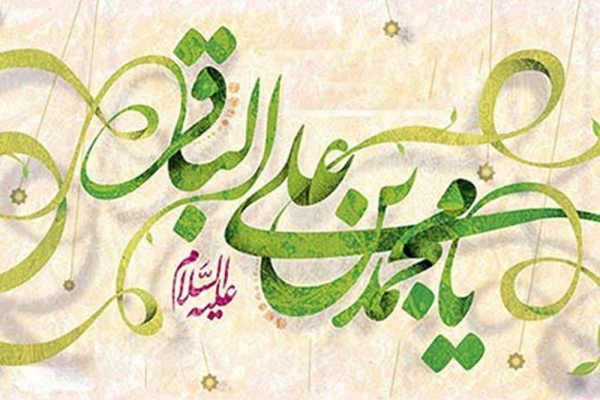 یا محمد بن علی الباقر
علیه السَّلام